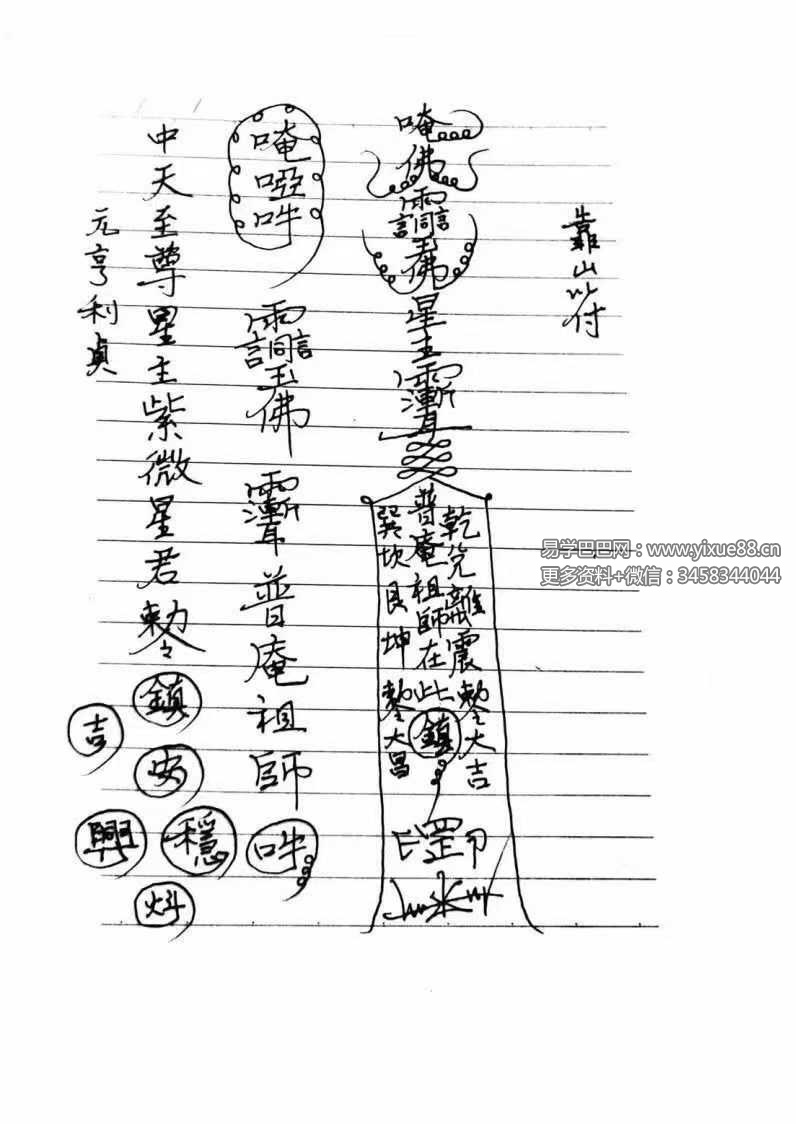 靠山符
唵佛佛星主
乾兌離震勅令大吉
普庵祖師在此鎮
巽坎艮坤勅令大昌
罡印
唵啞吽佛普庵祖師吽
中天至尊星主紫微星君勅令鎮安
穩
興
吉
元亨利貞
易学巴巴网：www.yixue88.cn
更多资料+微信：3458344044